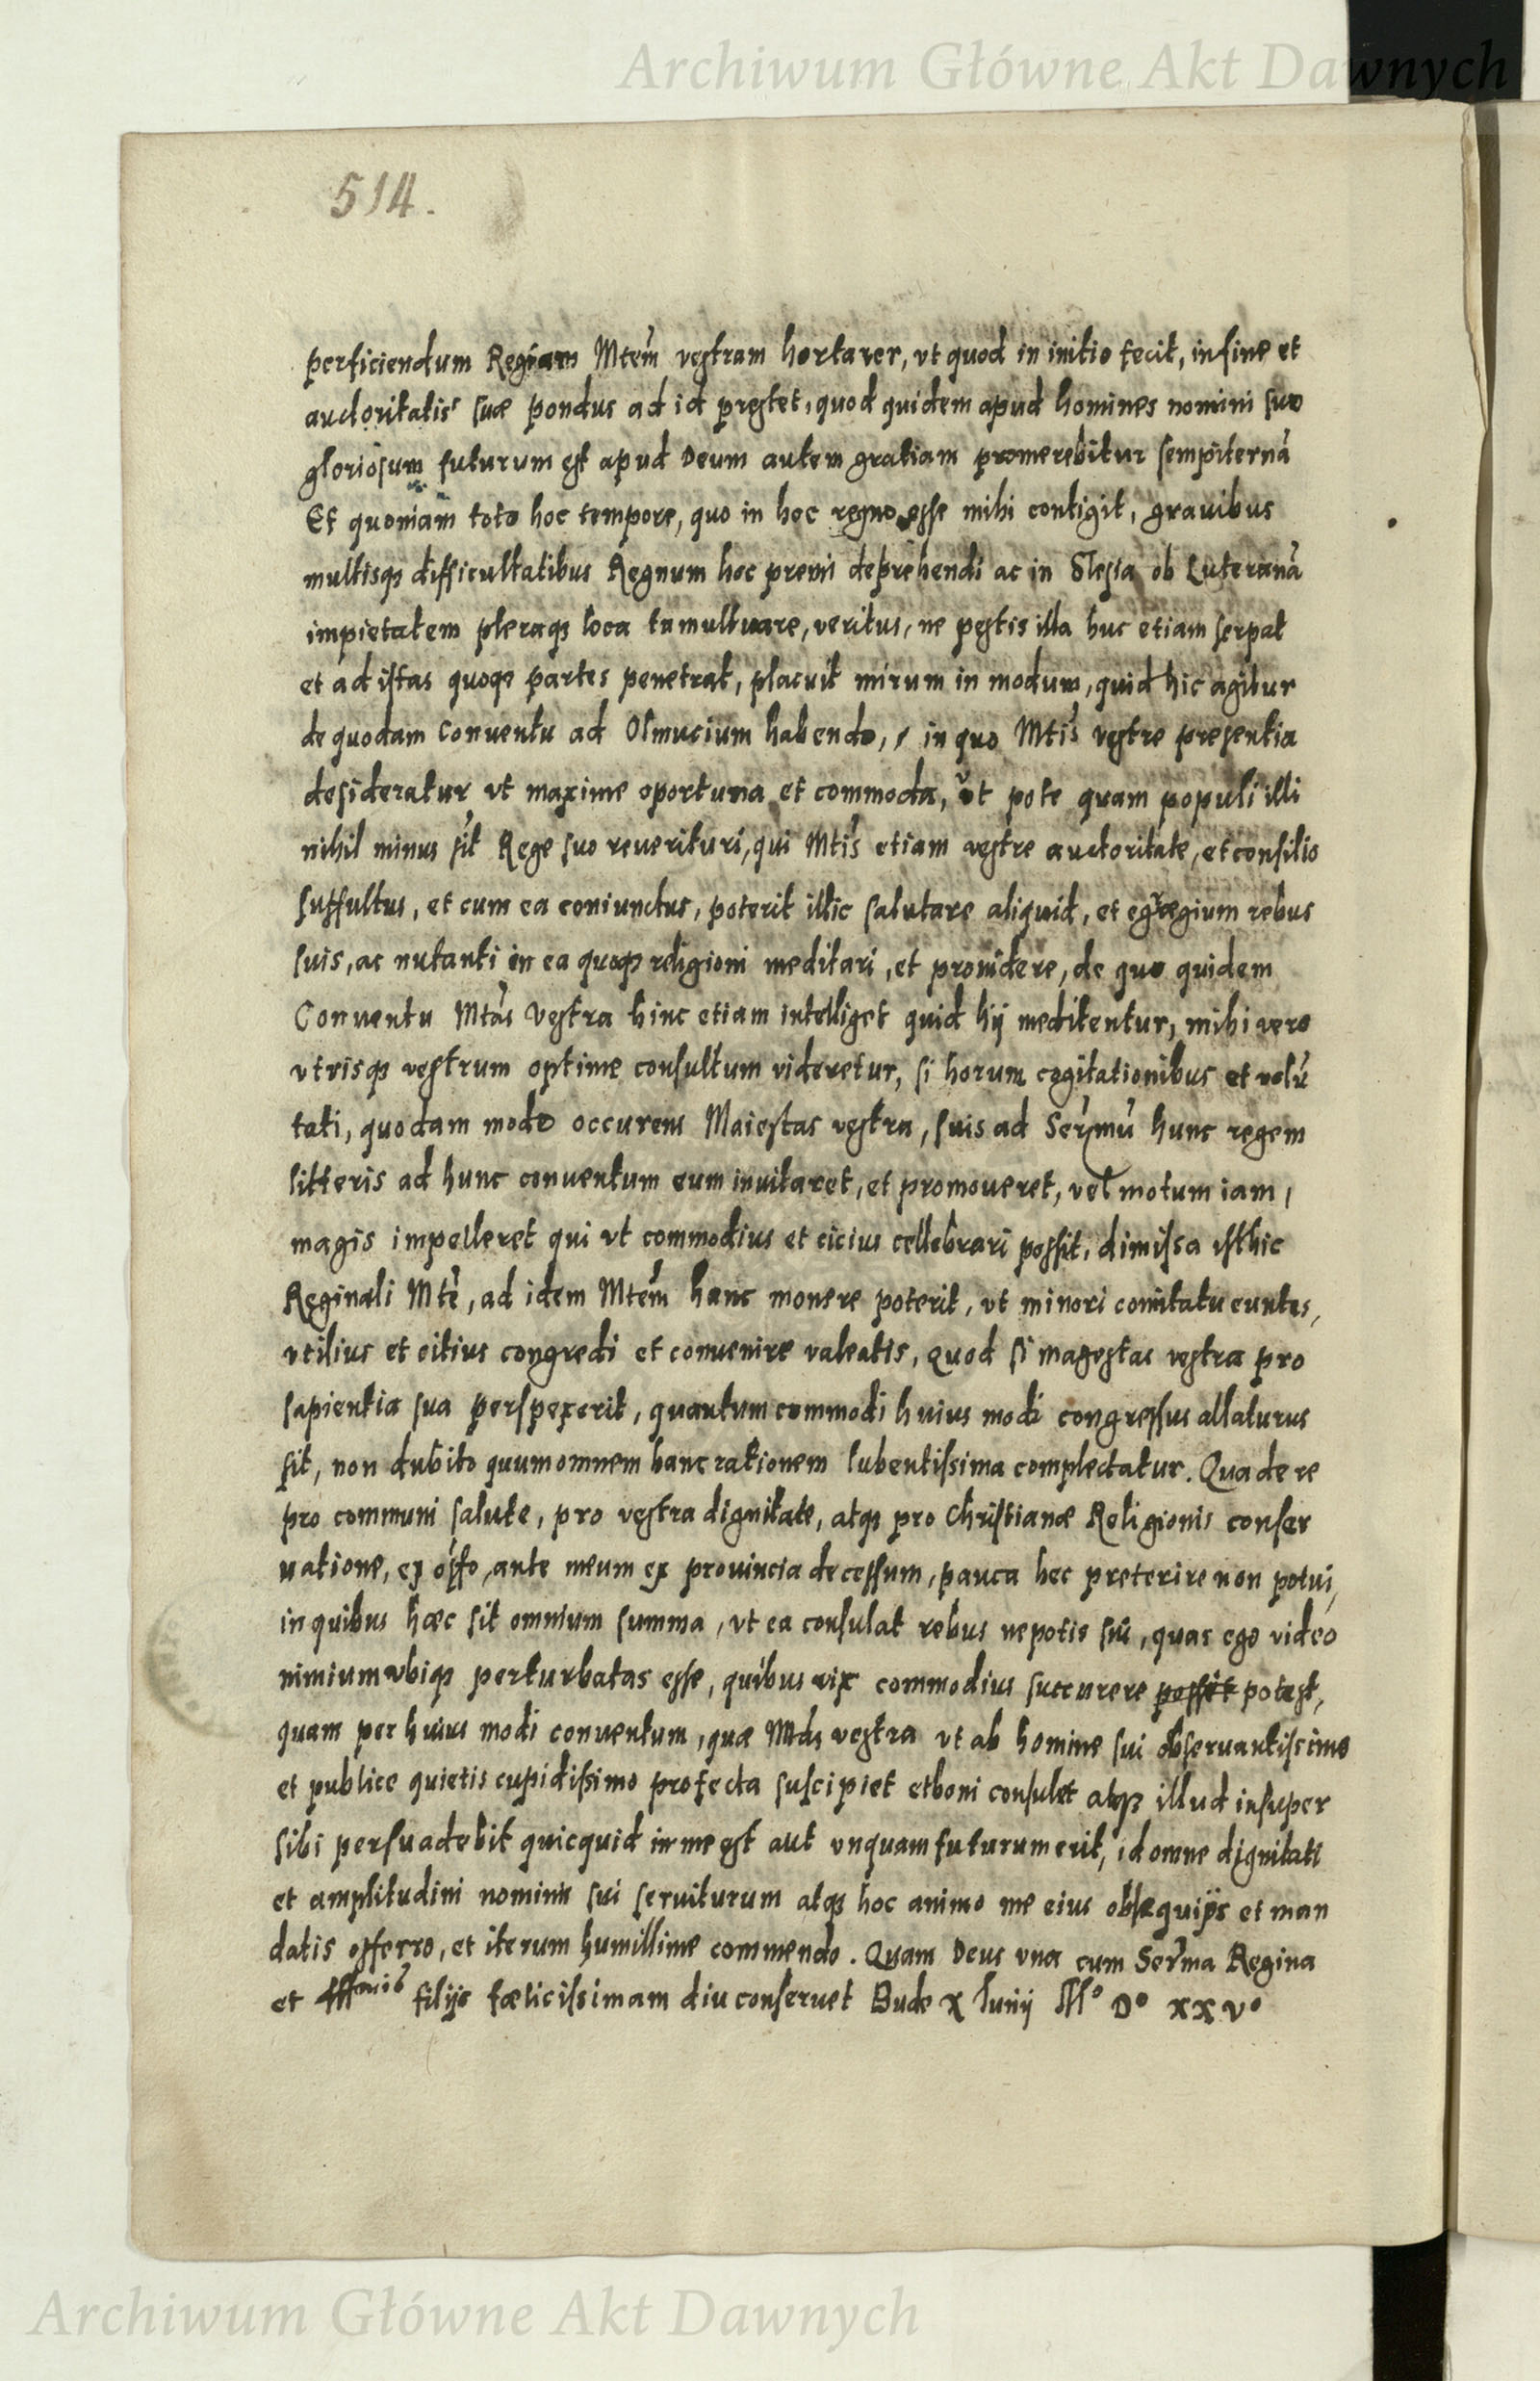 Archiwum Główne Akt Dawnych
514.
perficiendum Regiam Mtem̃ vestram hortarer, vt quod in initio fecit, in fine et
auctoritatis suæ pondus ad id prestet, quod quidem apud homines nomini suo
gloriosum futurum est apud Deum autem gratiam promerebitur sempiternã
Et quoniam toto hoc tempore, quo in hoc regno esse mihi contigit, grauibus
multisqꝫ difficultatibus Regnum hoc premi deprehendi ac in Slesia ob Luteranã
impietatem pleraqꝫ loca tumultuare, veritus, ne pestis illa huc etiam serpat
et ad istas quoqꝫ partes penetrat, placuit mirum in modum, quid hic agitur
de quodam Conuentu ad Olmucium habendo, in quo Mtis̃ vestre presentia
desideratur vt maxime oportuna et commoda, vt pote quam populi illi
nihil minus sit Rege suo reuerituri, qui Mtis̃ etiam vestre auctoritate, et consilio
suffultus, et cum ea coniunctus, poterit illic salutare aliquid, et egrægium rebus
suis, ac nutanti in ea quoqꝫ religioni meditari, et prouidere, de quo quidem
Conuentu Mtãs Vestra hinc etiam intelliget quid hij meditentur, mihi vero
vtrisqꝫ vestrum optime consultum videretur, si horum cogitationibus et volũ
tati, quodam modo occurens Maiestas vestra, suis ad Serm̃ũ hunc regem
litteris ad hunc conuentum eum inuitaret, et promoueret, vel motum iam,
magis impelleret qui vt commodius et cicius cellebrari possit, dimissa isthic
Reginali Mtẽ, ad idem Mtem̃ hanc monere poterit, vt minori comitatu euntes,
vtilius et citius congredi et conuenire valeatis, quod si magestas vestra pro
sapientia sua perspexerit, quantum commodi huius modi congressus allaturus
sit, non dubito quum omnem hanc rationem lubentissima complectatur. Qua de re
pro communi salute, pro vestra dignitate, atqꝫ pro Christianæ Religionis conser
uatione, ex offo, ante meum ex prouincia decessum, pauca hec preterire non potui,
in quibus hæc sit omnium summa, vt ea consulat rebus nepotis sui, quas ego video
nimium vbiqꝫ perturbatas esse, quibus vix commodius succurere possit potest,
quam per huius modi conuentum, quæ Mtas vestra vt ab homine sui obseruantissimo
et publice quietis cupidissimo profecta suscipiet et boni consulet atqꝫ illud insuper
sibi persuadebit quicquid in me est aut vnquam futurum erit, id omne dignitati
et amplitudini nominis sui seruiturum atqꝫ hoc animo me eius obsequijs et man
datis offerro, et iterum humillime commendo. Quam Deus vna cum Serm̃a Regina
et filijs fœlicissimam diu conseruet Bude X Junij Mº Dº xxvº
Archiwum Główne Akt Dawnych